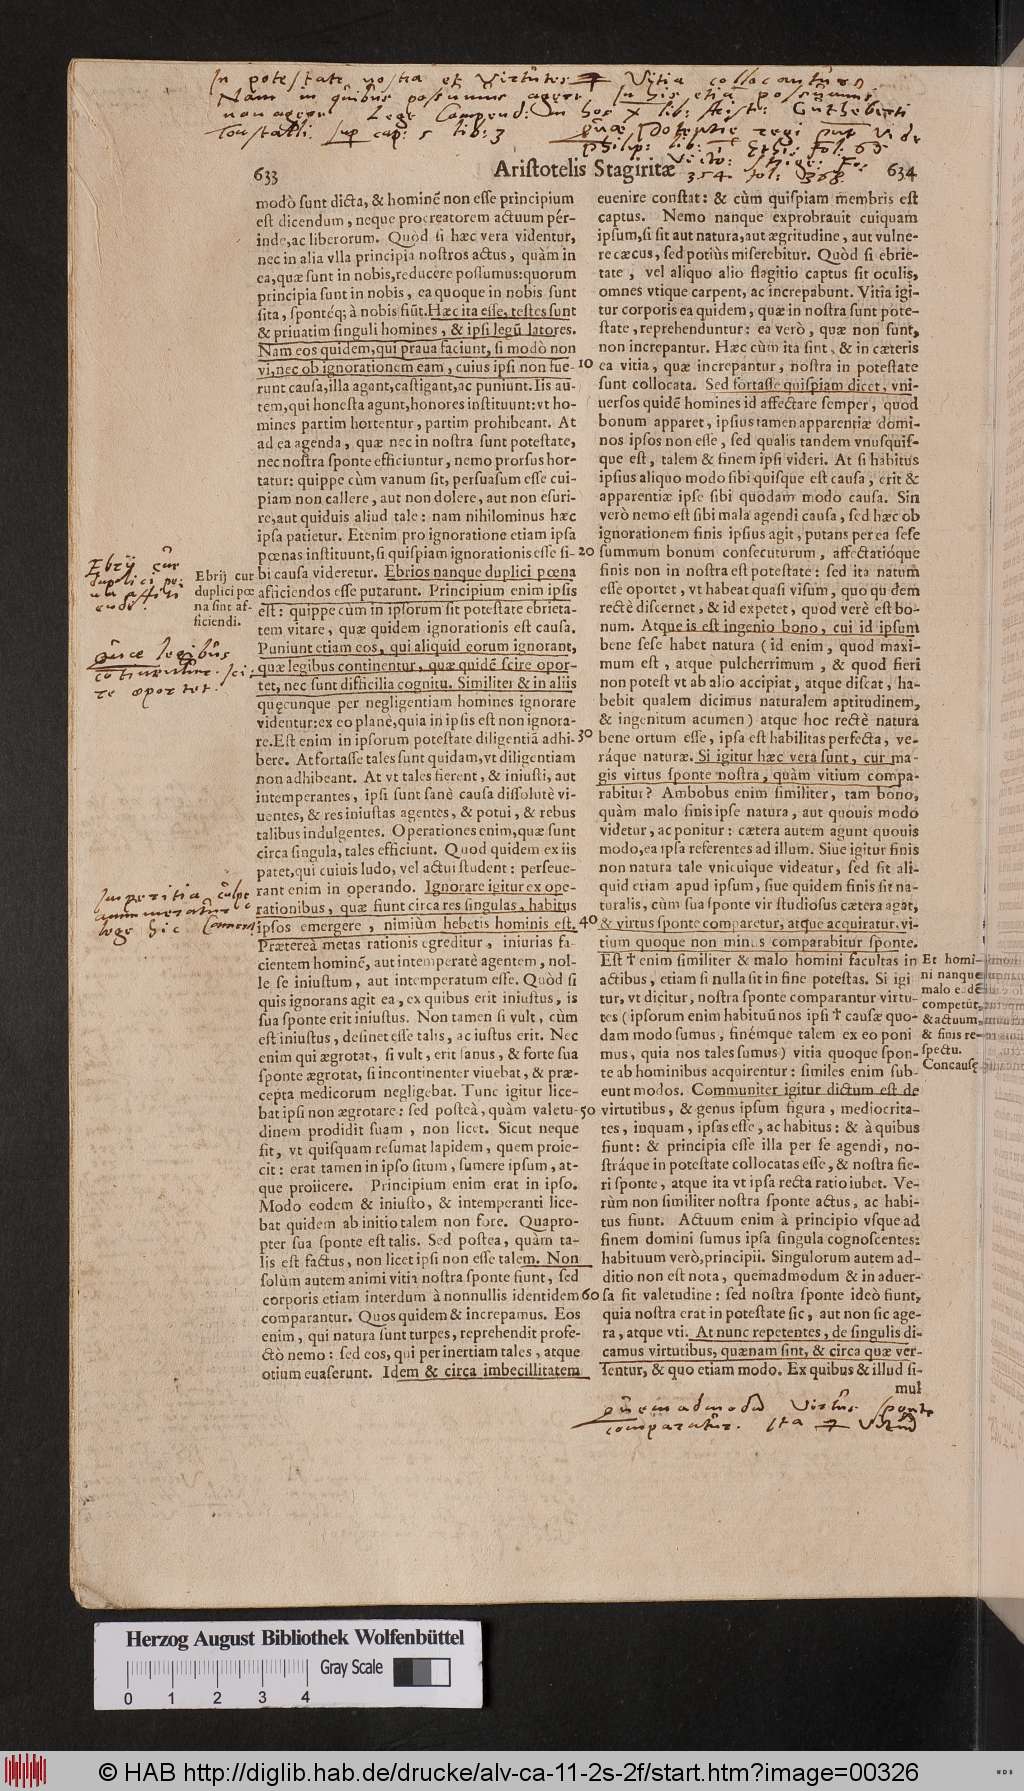 In potestate nostra et Virtutes Vitia collocantur
Nam in quibus possumus agere In his etiam possumus
non agere Lege Compend: in hos X lib: Arist: Cuthberti
Tonstalli. sup cap: 5 lib: 3
Philip: lib: Ethic fol: 65
354 fol: 368
633
Aristotelis Stagiritæ
634
modò sunt dicta, & hominē non esse principium
est dicendum, neque procreatorem actuum pér-
inde, ac liberorum. Quòd si hæc vera videntur,
nec in alia vlla principia nostros actus, quàm in
ea, quæ sunt in nobis, reducere possumus: quorum
principia sunt in nobis, ea quoque in nobis sunt
sita, spontéq; à nobis fiūt. Hæc ita esse, testes sunt
& priuatim singuli homines, & ipsi legū latores.
Nam eos quidem, qui praua faciunt, si modò non
vi, nec ob ignorationem eam, cuius ipsi non fue-
runt causa, illa agant, castigant, ac puniunt. Iis au-
tem, qui honesta agunt, honores instituunt: vt ho-
mines partim hortentur, partim prohibeant. At
ad ea agenda, quæ nec in nostra sunt potestate,
nec nostra sponte efficiuntur, nemo prorsus hor-
tatur: quippe cùm vanum sit, persuasum esse cui-
piam non callere, aut non dolere, aut non esuri-
re, aut quiduis aliud tale: nam nihilominus hæc
ipsa patietur. Etenim pro ignoratione etiam ipsa
pœnas instituunt, si quispiam ignorationis esse si-
bi causa videretur. Ebrios nanque duplici pœna
afficiendos esse putarunt. Principium enim ipsis
est: quippe cùm in ipsorum sit potestate ebrieta-
tem vitare, quæ quidem ignorationis est causa.
Puniunt etiam eos, qui aliquid eorum ignorant,
quæ legibus continentur, quæ quidē scire opor-
tet, nec sunt difficilia cognitu. Similiter & in aliis
quęcunque per negligentiam homines ignorare
videntur: ex eo planè, quia in ipsis est non ignora-
re. Est enim in ipsorum potestate diligentiā adhi-
bere. At fortasse tales sunt quidam, vt diligentiam
non adhibeant. At vt tales fierent, & iniusti, aut
intemperantes, ipsi sunt sanè causa dissolutè vi-
uentes, & res iniustas agentes, & potui, & rebus
talibus indulgentes. Operationes enim, quæ sunt
circa singula, tales efficiunt. Quod quidem ex iis
patet, qui cuiuis ludo, vel actui student: perseue-
rant enim in operando. Ignorare igitur ex ope-
rationibus, quæ fiunt circa res singulas, habitus
ipsos emergere, nimiùm hebetis hominis est.
Prætereà metas rationis egreditur, iniurias fa-
cientem hominē, aut intemperatè agentem, nol-
le se iniustum, aut intemperatum esse. Quòd si
quis ignorans agit ea, ex quibus erit iniustus, is
sua sponte erit iniustus. Non tamen si vult, cùm
est iniustus, desinet esse talis, ac iustus erit. Nec
enim qui ægrotat, si vult, erit sanus, & forte sua
sponte ægrotat, si incontinenter viuebat, & præ-
cepta medicorum negligebat. Tunc igitur lice-
bat ipsi non ægrotare: sed posteà, quàm valetu-
dinem prodidit suam, non licet. Sicut neque
fit, vt quisquam resumat lapidem, quem proie-
cit: erat tamen in ipso situm, sumere ipsum, at-
que proiicere. Principium enim erat in ipso.
Modo eodem & iniusto, & intemperanti lice-
bat quidem ab initio talem non fore. Quapro-
pter sua sponte est talis. Sed postea, quàm ta-
lis est factus, non licet ipsi non esse talem. Non
solùm autem animi vitia nostra sponte fiunt, sed
corporis etiam interdum à nonnullis identidem
comparantur. Quos quidem & increpamus. Eos
enim, qui natura sunt turpes, reprehendit profe-
ctò nemo: sed eos, qui per inertiam tales, atque
otium euaserunt. Idem & circa imbecillitatem
Ebrij cur
duplici pœ-
na affici
endi.
Ebrij cur
duplici pœ
na sint af-
ficiendi.
quæ legibus
continentur. sci-
re oportet.
Imperitia culpæ
annumeratur
lege hic
10
20
30
40
50
60
euenire constat: & cùm quispiam membris est
captus. Nemo nanque exprobrauit cuiquam
ipsum, si sit aut natura, aut ægritudine, aut vulne-
re cæcus, sed potiùs miserebitur. Quòd si ebrie-
tate, vel aliquo alio flagitio captus sit oculis,
omnes vtique carpent, ac increpabunt. Vitia igi-
tur corporis ea quidem, quæ in nostra sunt pote-
state, reprehenduntur: ea verò, quæ non sunt,
non increpantur. Hæc cùm ita sint, & in cæteris
ea vitia, quæ increpantur, nostra in potestate
sunt collocata. Sed fortasse quispiam dicet, vni-
uersos quidē homines id affectare semper, quod
bonum apparet, ipsius tamen apparentiæ domi-
nos ipsos non esse, sed qualis tandem vnusquis-
que est, talem & finem ipsi videri. At si habitus
ipsius aliquo modo sibi quisque est causa, erit &
apparentiæ ipse sibi quodam modo causa. Sin
verò nemo est sibi mala agendi causa, sed hæc ob
ignorationem finis ipsius agit, putans per ea sese
summum bonum consecuturum, affectatióque
finis non in nostra est potestate: sed ita natum
esse oportet, vt habeat quasi visum, quo quidem
rectè discernet, & id expetet, quod verè est bo-
num. Atque is est ingenio bono, cui id ipsum
bene sese habet natura (id enim, quod maxi-
mum est, atque pulcherrimum, & quod fieri
non potest vt ab alio accipiat, atque discat, ha-
bebit qualem dicimus naturalem aptitudinem,
& ingenitum acumen) atque hoc rectè natura
bene ortum esse, ipsa est habilitas perfecta, ve-
ráque naturæ. Si igitur hæc vera sunt, cur ma-
gis virtus sponte nostra, quàm vitium compa-
rabitur? Ambobus enim similiter, tam bono,
quàm malo finis ipse natura, aut quouis modo
videtur, ac ponitur: cætera autem agunt quouis
modo, ea ipsa referentes ad illum. Siue igitur finis
non natura tale vnicuique videatur, sed sit ali-
quid etiam apud ipsum, siue quidem finis sit na-
turalis, cùm sua sponte vir studiosus cætera agat,
& virtus sponte comparetur, atque acquiratur: vi-
tium quoque non minus comparabitur sponte.
Est † enim similiter & malo homini facultas in
actibus, etiam si nulla sit in fine potestas. Si igi
tur, vt dicitur, nostra sponte comparantur virtu-
tes (ipsorum enim habituū nos ipsi † causæ quo-
dam modo sumus, finémque talem ex eo poni
mus, quia nos tales sumus) vitia quoque spon-
te ab hominibus acquirentur: similes enim sub-
eunt modos. Communiter igitur dictum est de
virtutibus, & genus ipsum figura, mediocrita-
tes, inquam, ipsas esse, ac habitus: & à quibus
fiunt: & principia esse illa per se agendi, no-
stráque in potestate collocatas esse, & nostra fie-
ri sponte, atque ita vt ipsa recta ratio iubet. Ve-
rùm non similiter nostra sponte actus, ac habi-
tus fiunt. Actuum enim à principio vsque ad
finem domini sumus ipsa singula cognoscentes:
habituum verò, principii. Singulorum autem ad-
ditio non est nota, quemadmodum & in aduer-
sa sit valetudine: sed nostra sponte ideò fiunt,
quia nostra erat in potestate sic, aut non sic age-
ra, atque vti. At nunc repetentes, de singulis di-
camus virtutibus, quænam sint, & circa quæ ver-
sentur, & quo etiam modo. Ex quibus & illud si-
mul
Et homi-
ni nanque
malo eædē
competūt,
& actuum,
& finis re-
spectu.
Concausę
quemadmodū Virtus sponte
comparatur. Ita Vitiū
Herzog August Bibliothek Wolfenbüttel
Gray Scale
0 1 2 3 4
© HAB http://diglib.hab.de/drucke/alv-ca-11-2s-2f/start.htm?image=00326